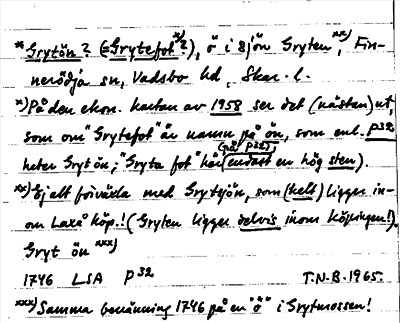 *Grytön? (=Grytefot*)?), ö i sjön Gryten xx), Fin-
nerödja sn, Vadsbo hd, Skar. l.
x) På den ekon. kartan av 1958 ser det (nästan) ut,
som om "Grytefot" är namn på ön, som enl. P32
heter Grytön; "Gryta fot" här (på P32:) endast en hög sten).
xx) Ej att förväxla med Grytsjön, som (helt) ligger in-
om Laxå köp.! (Gryten ligger delvis inom köpingen!).
Gryt ön xxx)
1746 LSA P32 T.N.B. 1965.
xxx) Samma benämning 1746 på en "ö" i Grytmossen!